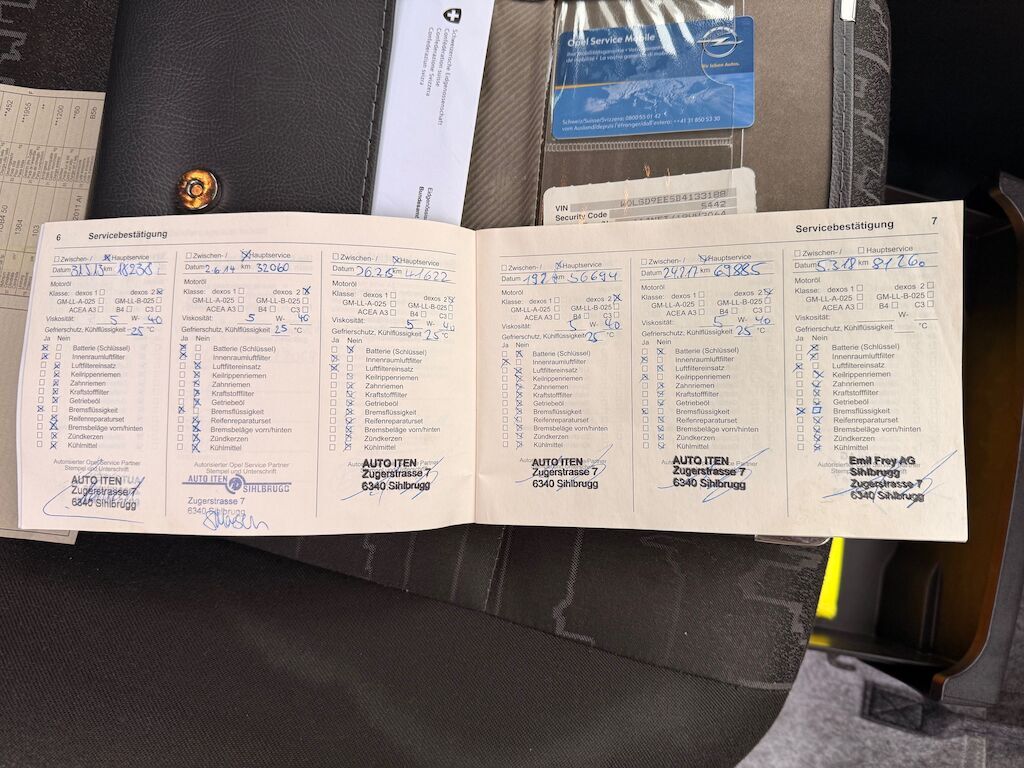 Schweizerische Eidgenossenschaft
Confédération suisse
Confederazione Svizzera
Confederaziun svizra
Opel Service Mobile
Wir leben Autos.
Schweiz/Suisse/Svizzera: 0800 55 01 42
vom Ausland/depuis l'étranger/dall'estero: ++41 31 850 53 30
VIN
Security Code 5442
6 Servicebestätigung
Zwischen-/ Hauptservice
Datum km
Motoröl
Klasse: dexos 1 dexos 2
GM-LL-A-025 GM-LL-B-025
ACEA A3 B4 C3
Viskosität 5 W- 40
Gefrierschutz, Kühlflüssigkeit -25 °C
Ja Nein
Batterie (Schlüssel)
Innenraumluftfilter
Luftfiltereinsatz
Keilrippenriemen
Zahnriemen
Kraftstofffilter
Getriebeöl
Bremsflüssigkeit
Reifenreparaturset
Bremsbeläge vorn/hinten
Zündkerzen
Kühlmittel
Autorisierter Opel Service Partner
Stempel und Unterschrift
AUTO ITEN
Zugerstrasse 7
6340 Sihlbrugg
Zwischen-/ Hauptservice
Datum 2.6.14 km 32060
Motoröl
Klasse: dexos 1 dexos 2
GM-LL-A-025 GM-LL-B-025
ACEA A3 B4 C3
Viskosität 5 W- 40
Gefrierschutz, Kühlflüssigkeit 25 °C
Ja Nein
Batterie (Schlüssel)
Innenraumluftfilter
Luftfiltereinsatz
Keilrippenriemen
Zahnriemen
Kraftstofffilter
Getriebeöl
Bremsflüssigkeit
Reifenreparaturset
Bremsbeläge vorn/hinten
Zündkerzen
Kühlmittel
Autorisierter Opel Service Partner
Stempel und Unterschrift
AUTO ITEN SIHLBRUGG
Zugerstrasse 7
6340 Sihlbrugg
Zwischen-/ Hauptservice
Datum km 41622
Motoröl
Klasse: dexos 1 dexos 2
GM-LL-A-025 GM-LL-B-025
ACEA A3 B4 C3
Viskosität 5 W- 40
Gefrierschutz, Kühlflüssigkeit 25 °C
Ja Nein
Batterie (Schlüssel)
Innenraumluftfilter
Luftfiltereinsatz
Keilrippenriemen
Zahnriemen
Kraftstofffilter
Getriebeöl
Bremsflüssigkeit
Reifenreparaturset
Bremsbeläge vorn/hinten
Zündkerzen
Kühlmittel
AUTO ITEN
Zugerstrasse 7
6340 Sihlbrugg
Servicebestätigung 7
Zwischen-/ Hauptservice
Datum km 56694
Motoröl
Klasse: dexos 1 dexos 2
GM-LL-A-025 GM-LL-B-025
ACEA A3 B4 C3
Viskosität 5 W- 40
Gefrierschutz, Kühlflüssigkeit 25 °C
Ja Nein
Batterie (Schlüssel)
Innenraumluftfilter
Luftfiltereinsatz
Keilrippenriemen
Zahnriemen
Kraftstofffilter
Getriebeöl
Bremsflüssigkeit
Reifenreparaturset
Bremsbeläge vorn/hinten
Zündkerzen
Kühlmittel
AUTO ITEN
Zugerstrasse 7
6340 Sihlbrugg
Zwischen-/ Hauptservice
Datum km
Motoröl
Klasse: dexos 1 dexos 2
GM-LL-A-025 GM-LL-B-025
ACEA A3 B4 C3
Viskosität 5 W- 40
Gefrierschutz, Kühlflüssigkeit 25 °C
Ja Nein
Batterie (Schlüssel)
Innenraumluftfilter
Luftfiltereinsatz
Keilrippenriemen
Zahnriemen
Kraftstofffilter
Getriebeöl
Bremsflüssigkeit
Reifenreparaturset
Bremsbeläge vorn/hinten
Zündkerzen
Kühlmittel
AUTO ITEN
Zugerstrasse 7
6340 Sihlbrugg
Zwischen-/ Hauptservice
Datum 5.3.18 km 81260
Motoröl
Klasse: dexos 1 dexos 2
GM-LL-A-025 GM-LL-B-025
ACEA A3 B4 C3
Viskosität W-
Gefrierschutz, Kühlflüssigkeit °C
Ja Nein
Batterie (Schlüssel)
Innenraumluftfilter
Luftfiltereinsatz
Keilrippenriemen
Zahnriemen
Kraftstofffilter
Getriebeöl
Bremsflüssigkeit
Reifenreparaturset
Bremsbeläge vorn/hinten
Zündkerzen
Kühlmittel
Emil Frey AG
Sihlbrugg
Zugerstrasse 7
6340 Sihlbrugg